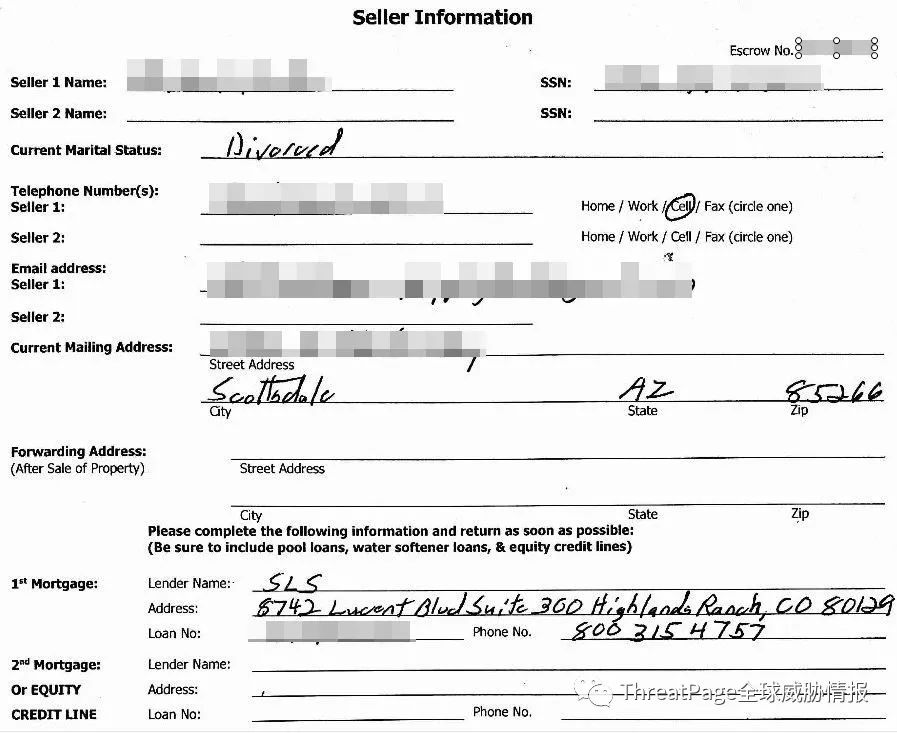 Seller Information
Escrow No.
Seller 1 Name: SSN:
Seller 2 Name: SSN:
Current Marital Status: Divorced
Telephone Number(s):
Seller 1: Home / Work / Cell / Fax (circle one)
Seller 2: Home / Work / Cell / Fax (circle one)
Email address:
Seller 1:
Seller 2:
Current Mailing Address:
Street Address
Scottsdale AZ 85266
City State Zip
Forwarding Address:
(After Sale of Property) Street Address
City State Zip
Please complete the following information and return as soon as possible:
(Be sure to include pool loans, water softener loans, & equity credit lines)
1st Mortgage: Lender Name: SLS
Address: 8742 Lucent Blvd Suite 300 Highlands Ranch, CO 80129
Loan No: Phone No. 800 315 4757
2nd Mortgage: Lender Name:
Or EQUITY Address:
CREDIT LINE Loan No: Phone No.
ThreatPage全球威胁情报